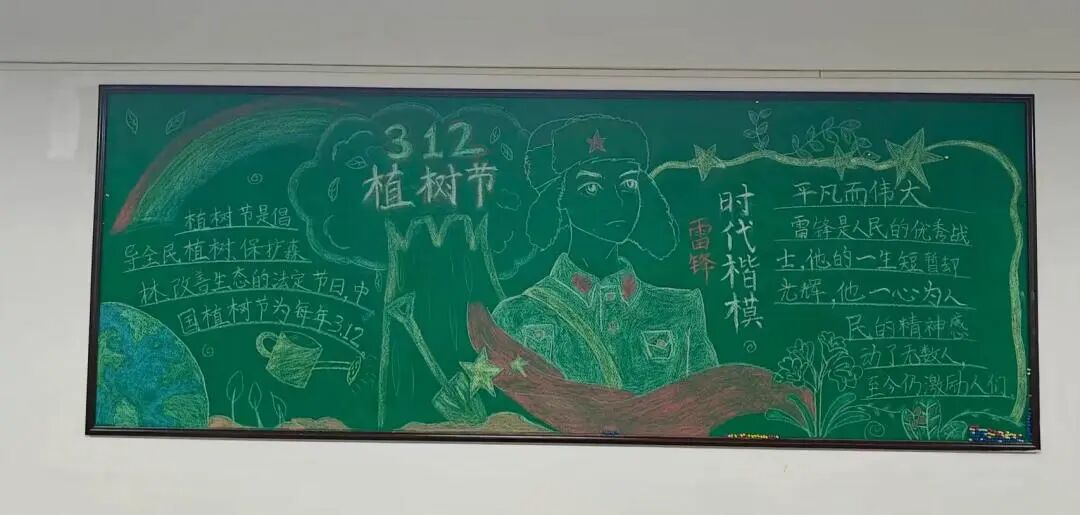 312
植树节
植树节是倡
导全民植树,保护森
林、改善生态的法定节日,中
国植树节为每年3.12。
雷锋
时代楷模
平凡而伟大
雷锋是人民的优秀战
士,他的一生短暂却
光辉,他一心为人
民的精神感
动了无数人,
至今仍激励人们